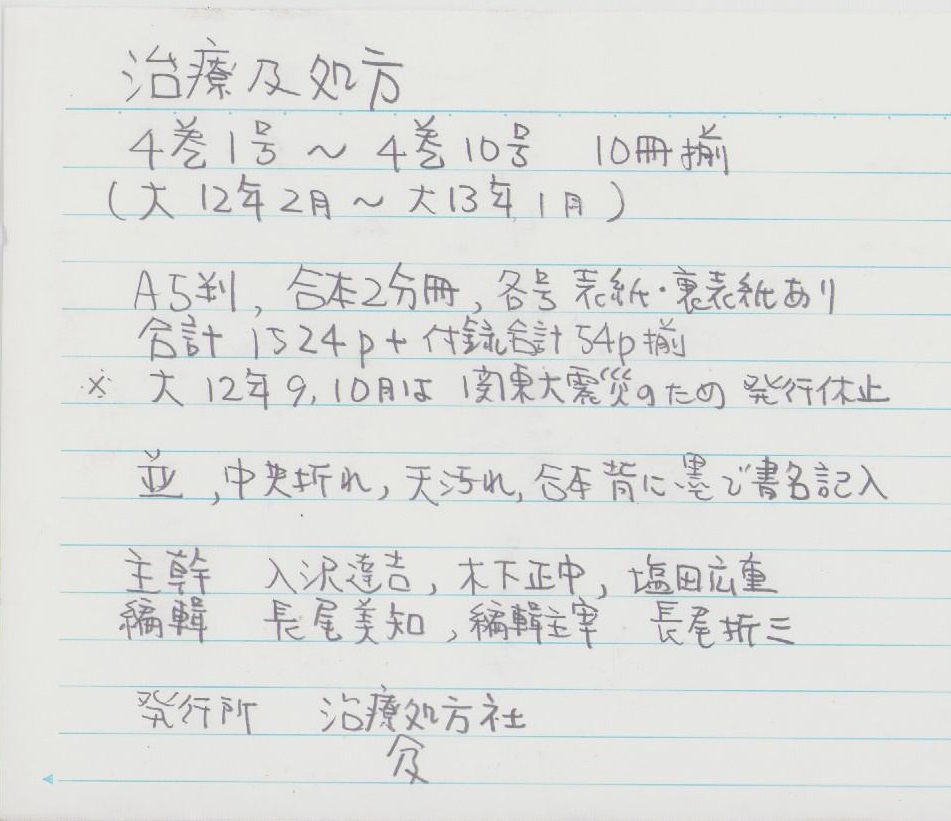 治療及処方
4巻1号〜4巻10号 10冊揃
(大12年2月〜大13年1月)
A5判, 合本2分冊, 各号表紙・裏表紙あり
合計1524p+付録合計54p揃
※ 大12年9,10月は関東大震災のため発行休止
並, 中央折れ, 天汚れ, 合本背に墨で書名記入
主幹 入沢達吉, 木下正中, 塩田広重
編輯 長尾美知, 編輯主宰 長尾折三
発行所 治療及処方社